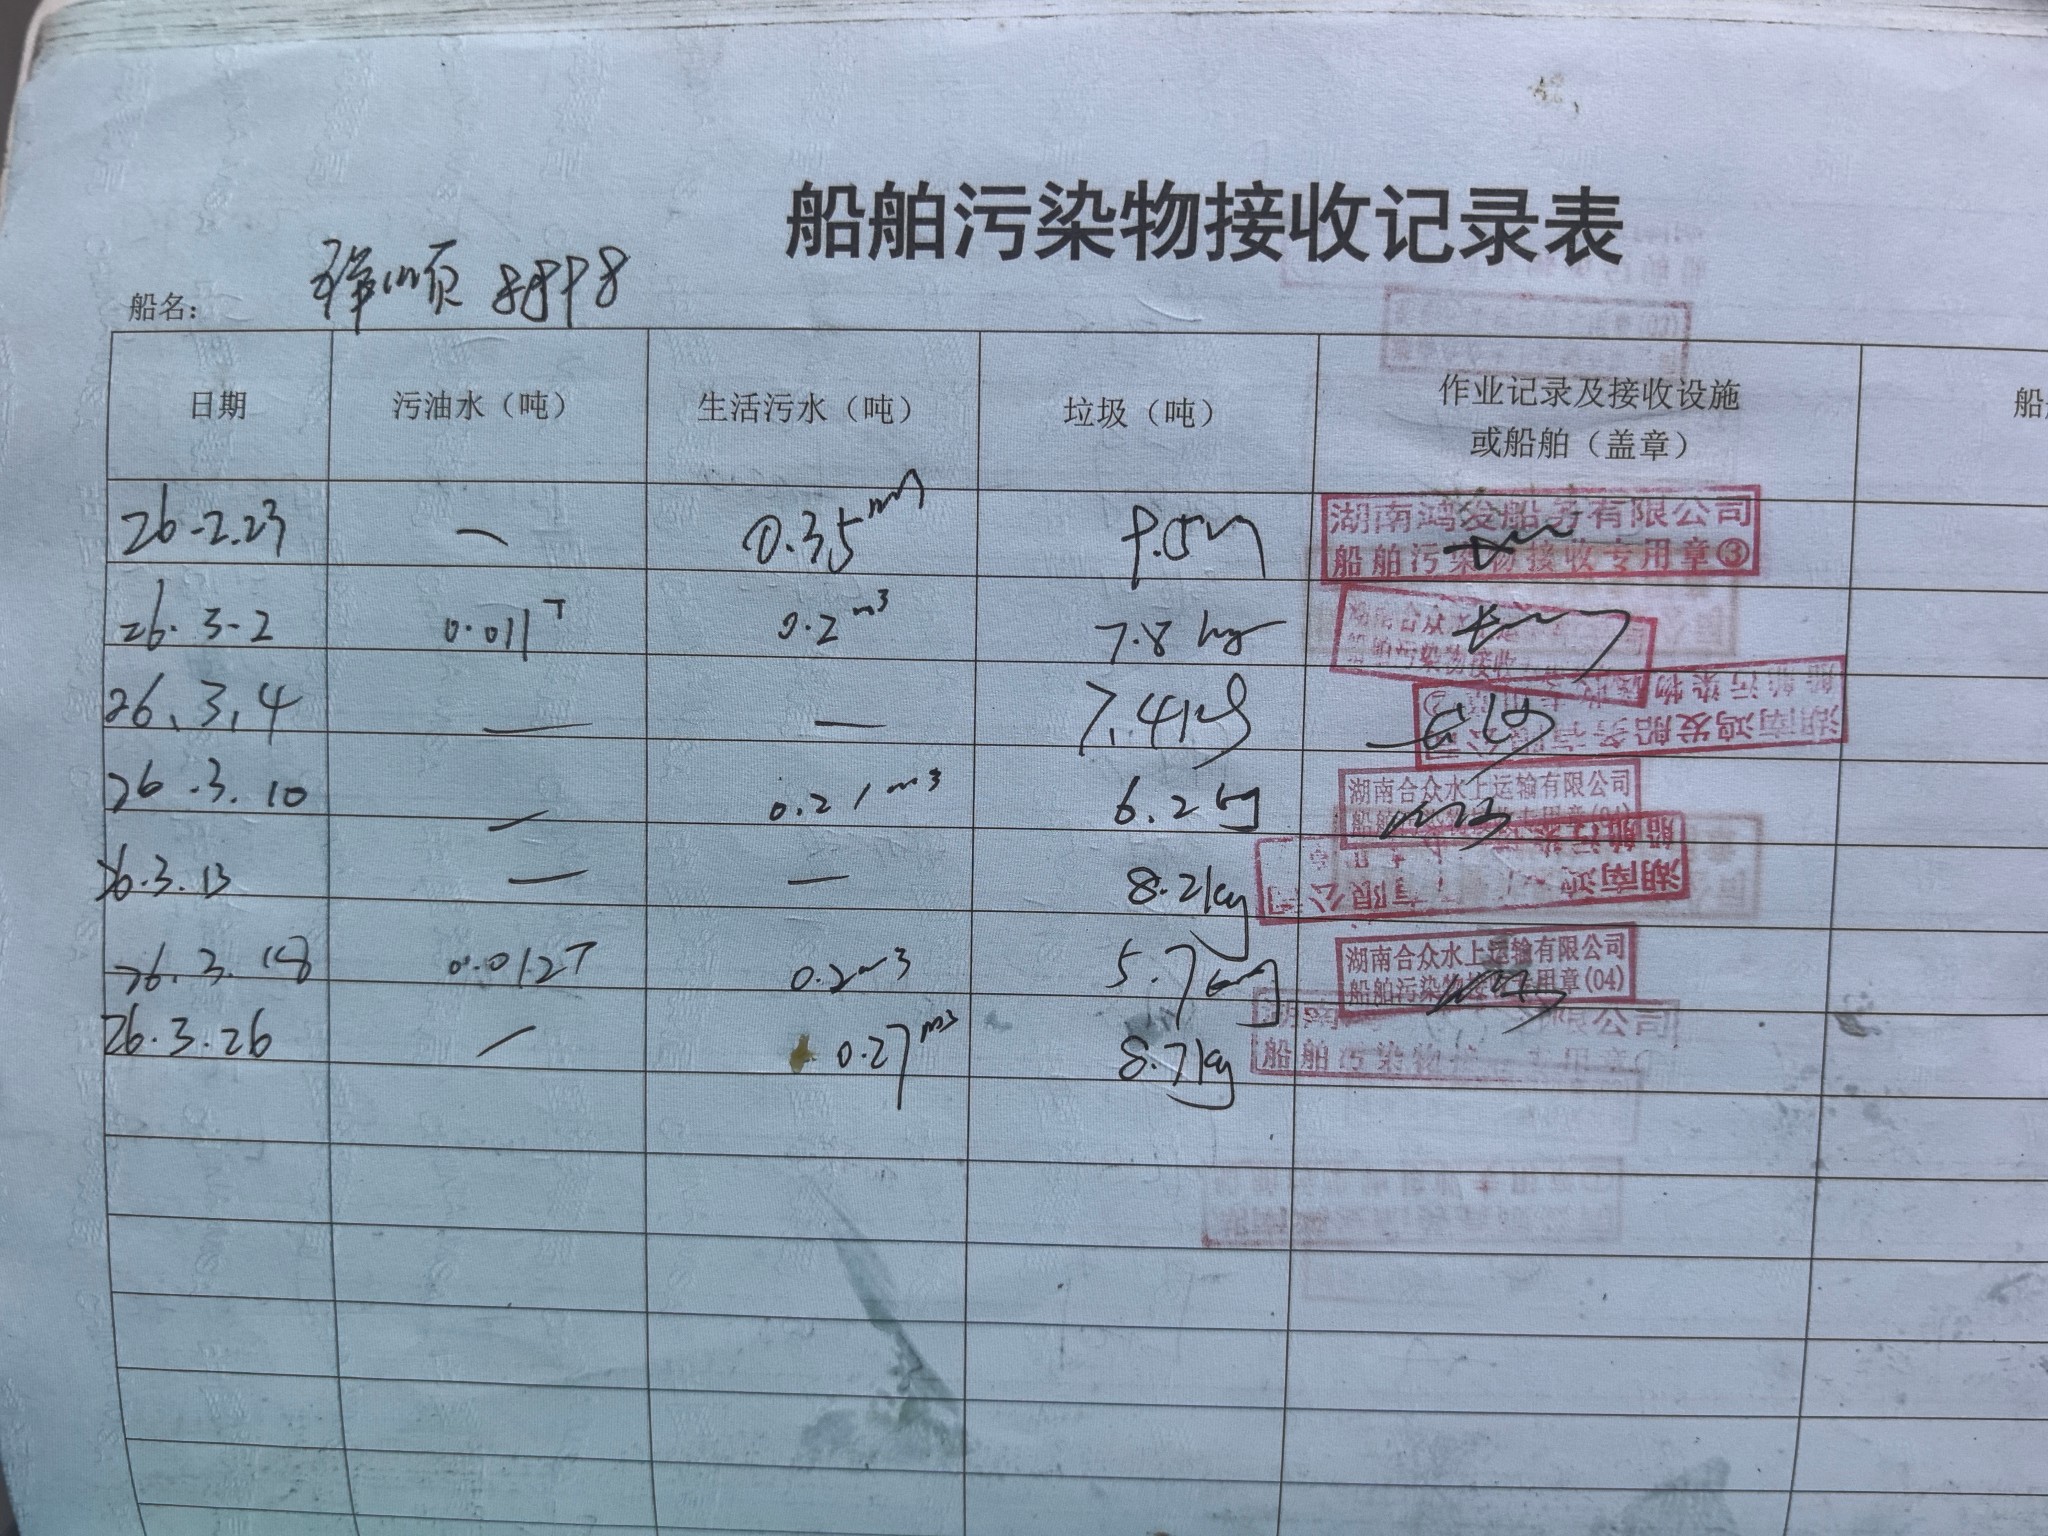 船舶污染物接收记录表
船名: 顺 8898
日期 污油水（吨） 生活污水（吨） 垃圾（吨） 作业记录及接收设施或船舶（盖章） 船
26-2.23 — 0.35 湖南鸿发船务有限公司
船舶污染物接收专用章③
26.3-2 0.011T 0.2m3 7.8kg 湖南合众水上运输有限公司
船舶污染物接收
26.3.4 — — 7.4kg 湖南鸿发船务有限公司
船舶污染物
26.3.10 — 0.21m3 6.2kg 湖南合众水上运输有限公司
船舶污染物接收专用章(04)
26.3.13 — — 8.2kg 湖南鸿 有限公司
船舶污染
26.3.18 0.012T 0.2m3 5.7kg 湖南合众水上运输有限公司
船舶污染物接收专用章(04)
26.3.26 — 0.27m3 8.7kg 湖南 有限公司
船舶污染物接 专用章